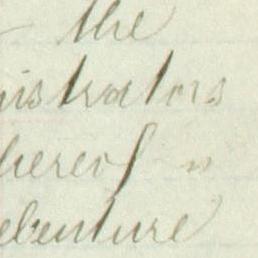 the
istrators
hereof "
ebenture